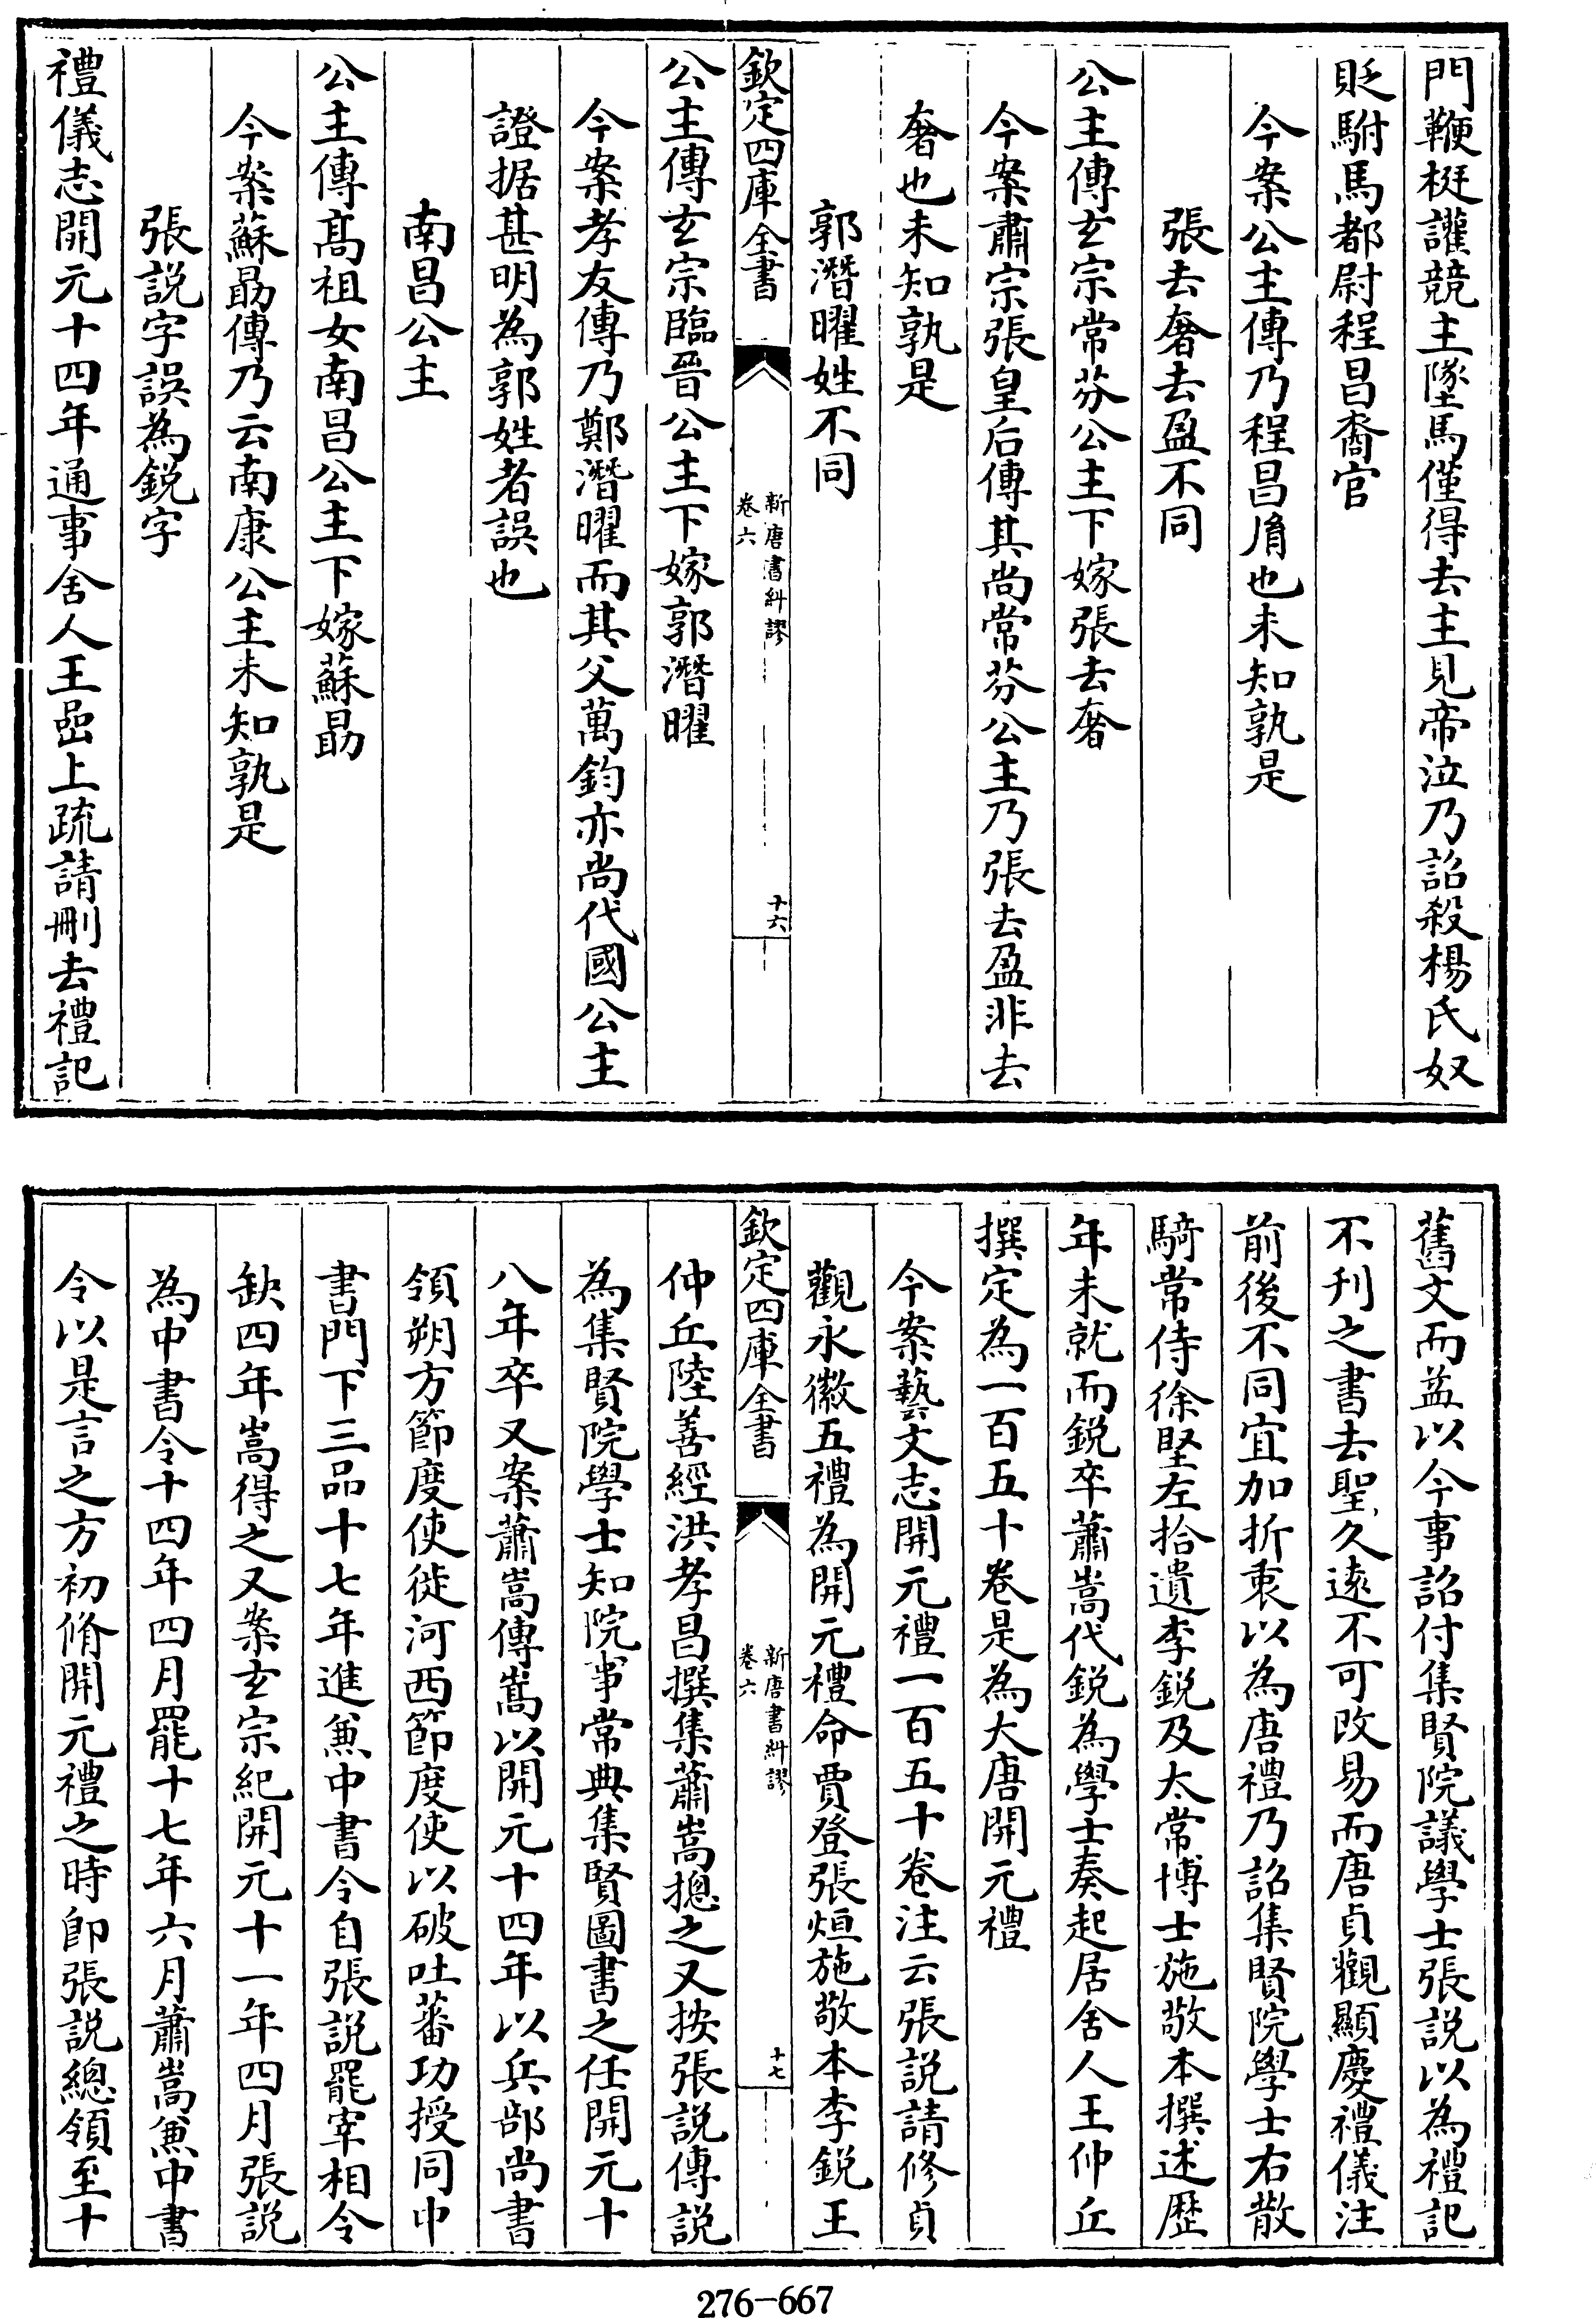 門鞭梃讙競主墜馬僅得去主見帝泣乃詔殺楊氏奴
貶駙馬都尉程昌裔官
今案公主傳乃程昌胤也未知孰是
張去奢去盈不同
公主傳玄宗常芬公主下嫁張去奢
今案肅宗張皇后傳其尚常芬公主乃張去盈非去
奢也未知孰是
郭潛曜姓不同
欽定四庫全書
新唐書糾謬
卷六
十六
公主傳玄宗臨晉公主下嫁郭潛曜
今案孝友傳乃鄭潛曜而其父萬鈞亦尚代國公主
證据甚明為郭姓者誤也
南昌公主
公主傳高祖女南昌公主下嫁蘇勗
今案蘇勗傳乃云南康公主未知孰是
張説字誤為鋭字
禮儀志開元十四年通事舍人王嵒上疏請刪去禮記
舊文而益以今事詔付集賢院議學士張説以為禮記
不刊之書去聖久逺不可改易而唐貞觀顯慶禮儀注
前後不同宜加折衷以為唐禮乃詔集賢院學士右散
騎常侍徐堅左拾遺李鋭及太常博士施敬本撰述歴
年未就而鋭卒蕭嵩代鋭為學士奏起居舍人王仲丘
撰定為一百五十卷是為大唐開元禮
今案藝文志開元禮一百五十卷注云張説請修貞
觀永徽五禮為開元禮命賈登張烜施敬本李鋭王
欽定四庫全書
新唐書糾謬
卷六
十七
仲丘陸善經洪孝昌撰集蕭嵩摠之又按張説傳説
為集賢院學士知院事常典集賢圖書之任開元十
八年卒又案蕭嵩傳嵩以開元十四年以兵部尚書
領朔方節度使徙河西節度使以破吐蕃功授同中
書門下三品十七年進兼中書令自張説罷宰相令
缺四年嵩得之又案玄宗紀開元十一年四月張説
為中書令十四年四月罷十七年六月蕭嵩兼中書
令以是言之方初脩開元禮之時卽張説總領至十
276-667